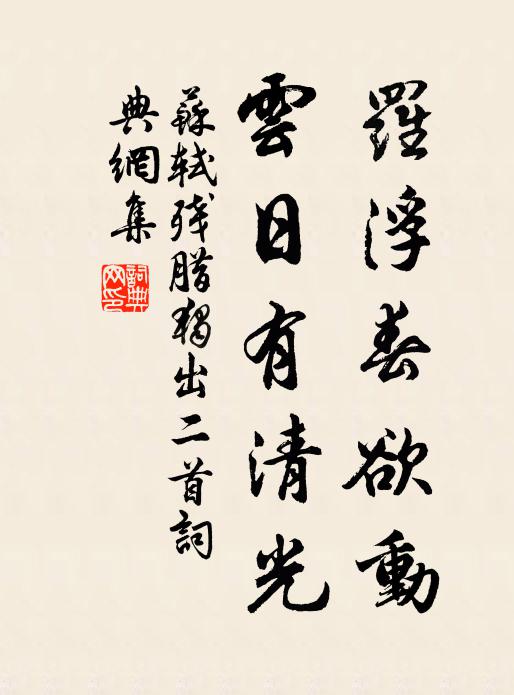 羅浮春欲動
雲日有清光
蘇軾残腊獨出二首詞
典網集
詞典网印